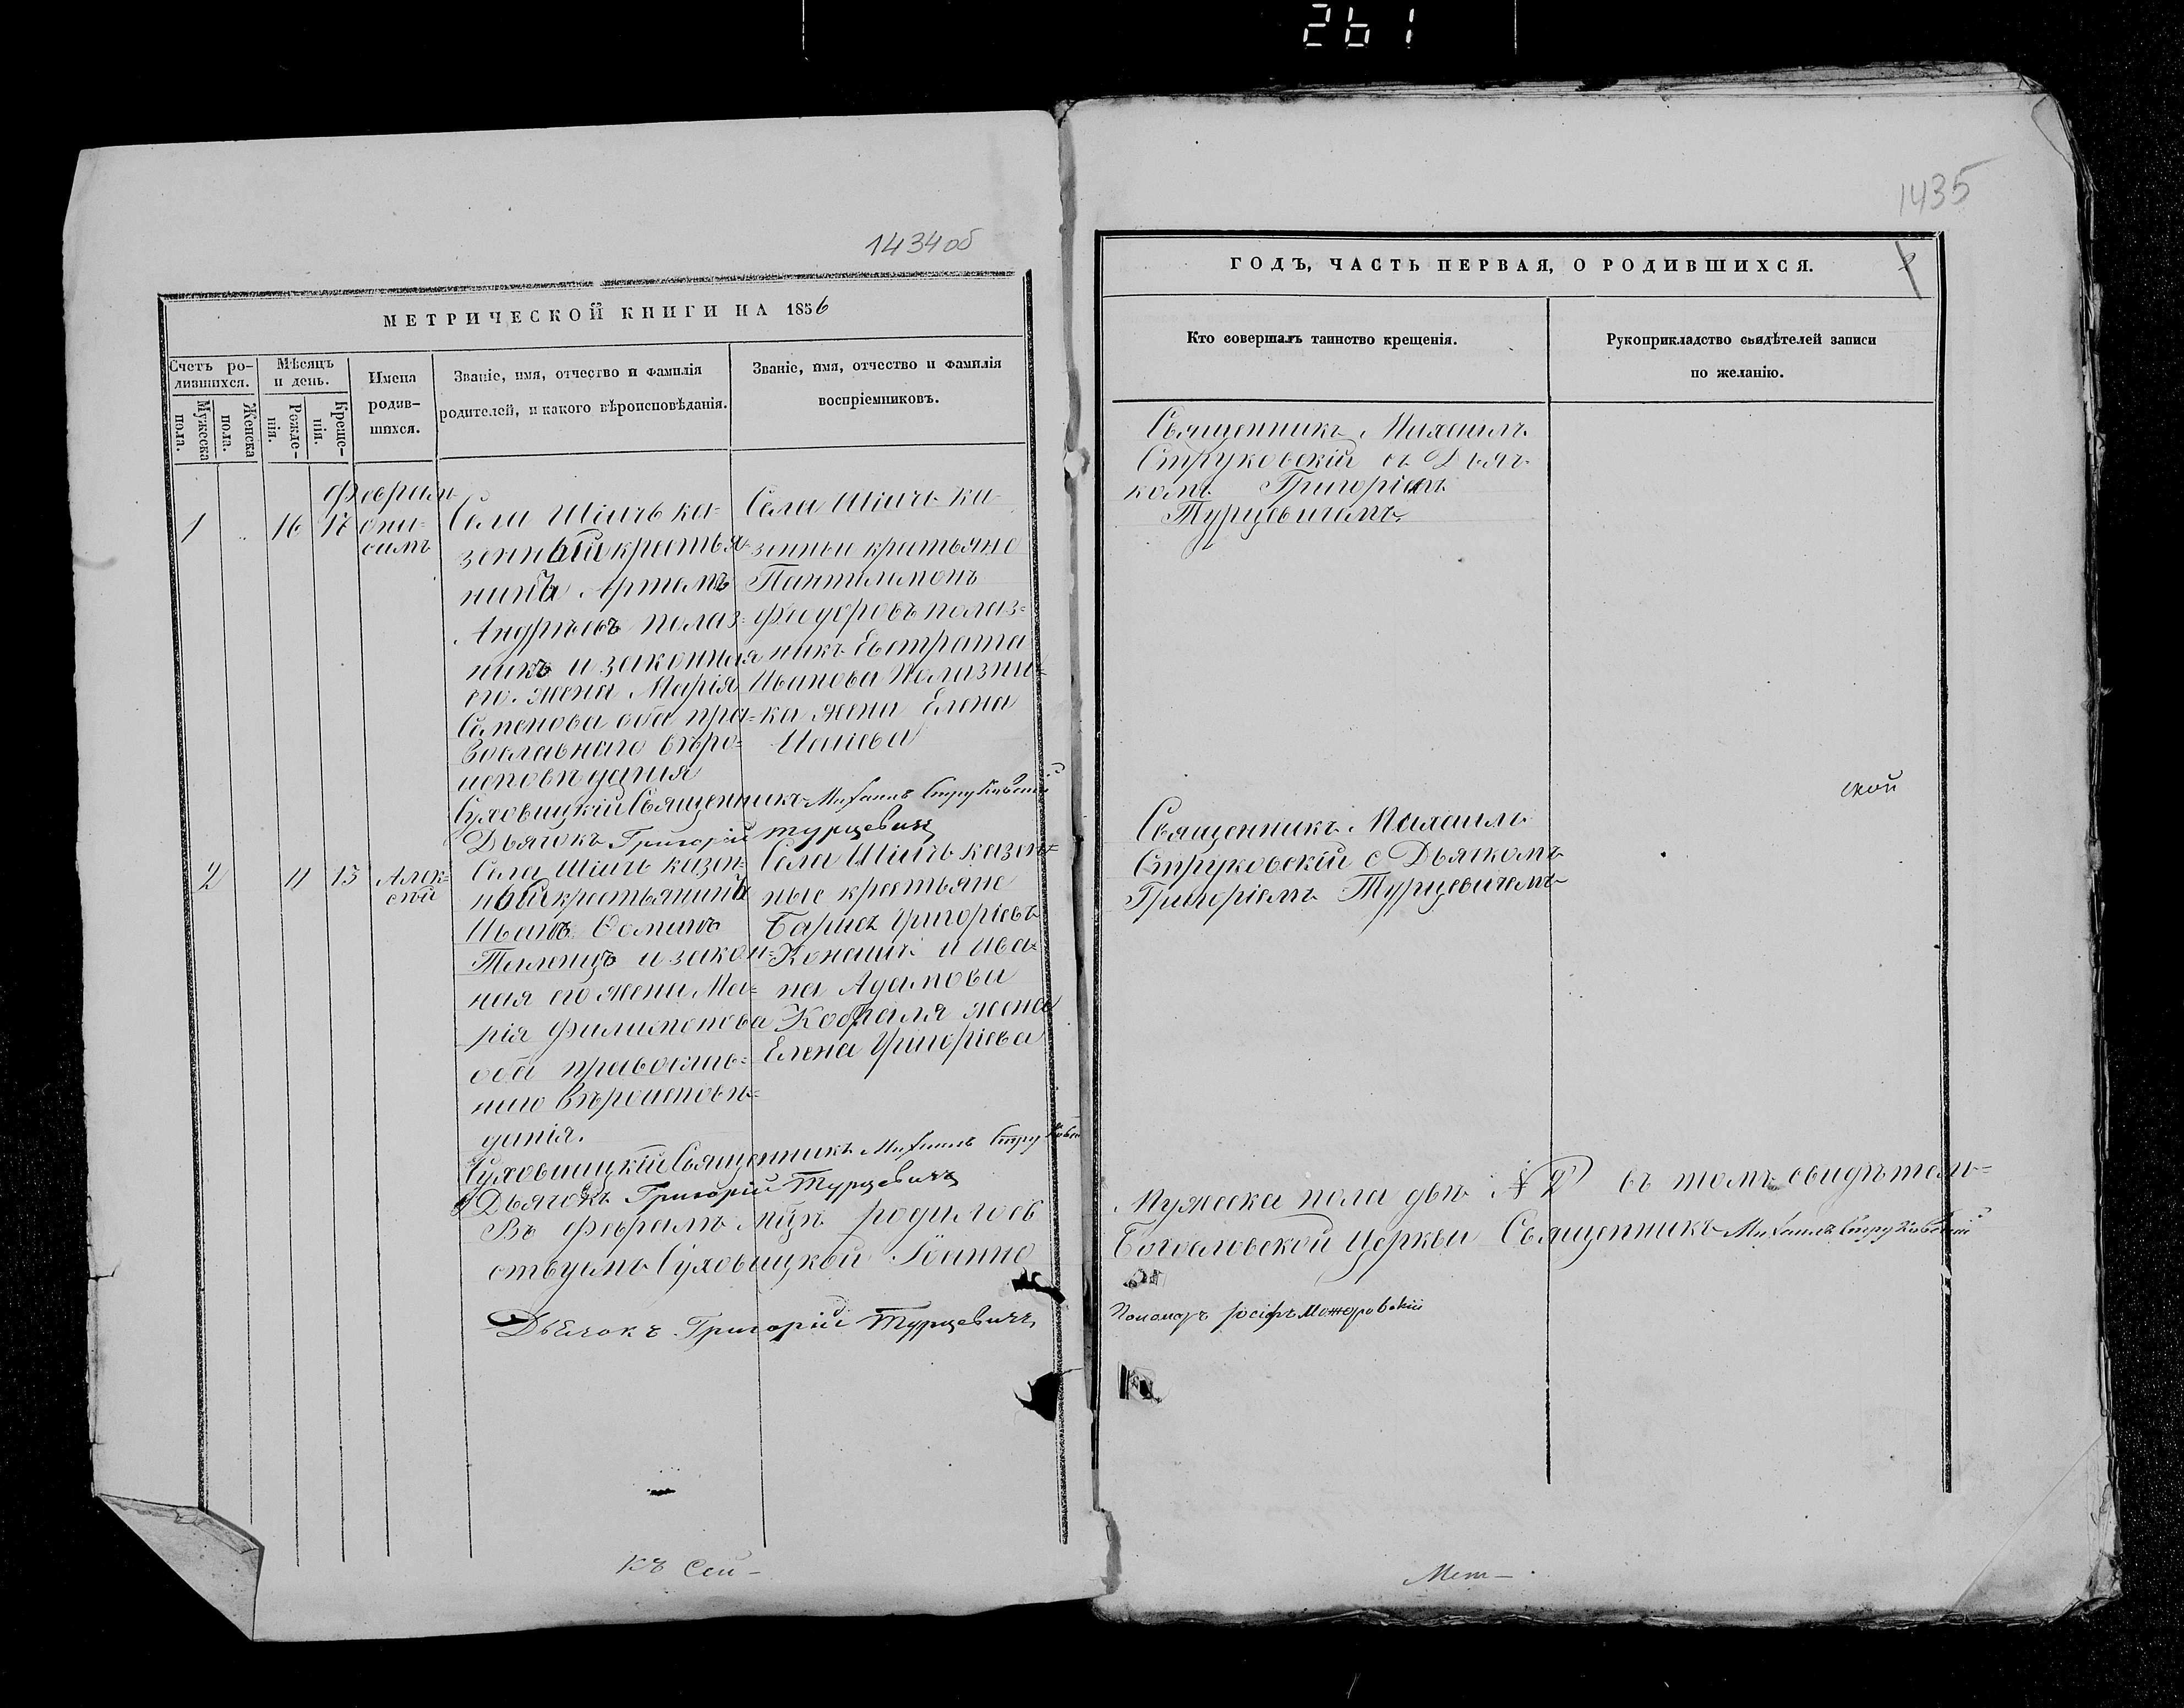 261
1434об
МЕТРИЧЕСКОЙ КНИГИ НА 1856
Счетъ ро-
дившихся.
Мужеска
пола.
Женска
пола.
Мѣсяцъ
и день.
Рожде-
нія.
Креще-
нія.
Имена
родив-
шихся.
Званіе, имя, отчество и фамилія
родителей, и какого вѣроисповѣданія.
Званіе, имя, отчество и фамилія
воспріемниковъ.
Февраль
1 16 17 Они-
симъ
Села Шіичь ка-
зенный крестья-
нинъ Артемъ
Андрѣевъ полаз-
никъ и законная
его жена Марія
Семенова оба пра-
вославнаго вѣро-
исповѣданія
Села Шіичь ка-
зенные крестьяне
Пантилемонъ
Федоровъ полаз-
никъ Евстрата
Иванова Полазни-
ка жена Елена
Суховицкій Священникъ Михаилъ Струковскій
Дьячокъ Григорій Турцевичъ
2 11 15 Алек-
сѣй
Села Шіичь казен-
ный крестьянинъ
Иванъ Ѳоминъ
и закон-
ная его жена Ма-
рія Филимонова
оба православ-
наго вѣроисповѣ-
данія.
Села Шіичь казен-
ные крестьяне
Борисъ Григоріевъ
и Ива-
на Адамова
жена
Елена Григоріева
Суховицкій Священникъ Михаилъ Струковскій
Дьячокъ Григорій Турцевичъ
Въ Февралѣ мцѣ родилось
ствуемъ Суховицкой Іоанно
Дьячокъ Григорій Турцевичъ
Къ Сей-
1435
ГОДЪ, ЧАСТЬ ПЕРВАЯ, О РОДИВШИХСЯ.
Кто совершалъ таинство крещенія.
Рукоприкладство свидѣтелей записи
по желанію.
Священникъ Михаилъ
Струковскій съ Дьяч-
комъ Григоріемъ
Турцевичемъ
ской
Священникъ Михаилъ
Струковскій с Дьячкомъ
Григоріемъ Турцевичемъ
Мужеска пола два № 2 въ томъ свидѣтель-
Богословской Церкви Священникъ Михаилъ Струковскій
Пономарь Іосифъ Можеровскій
Мет-